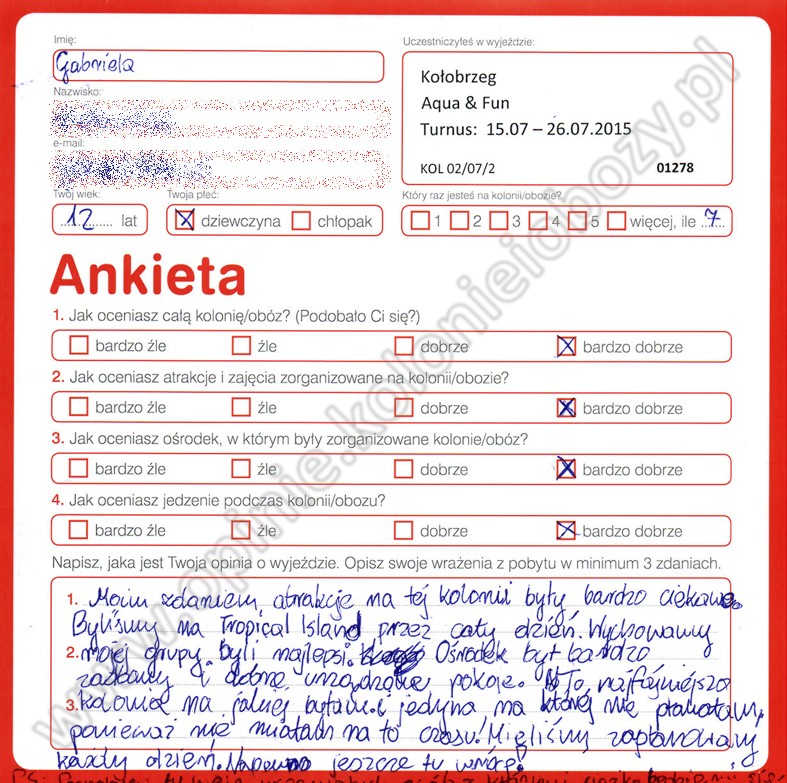 Imię:
Uczestniczyłeś w wyjeździe:
Gabriela
Kołobrzeg
Nazwisko:
Aqua & Fun
Turnus: 15.07 – 26.07.2015
e-mail:
KOL 02/07/2 01278
Twój wiek: Twoja płeć: Który raz jesteś na kolonii/obozie?
12 lat dziewczyna chłopak 1 2 3 4 5 więcej, ile 7
Ankieta
1. Jak oceniasz całą kolonię/obóz? (Podobało Ci się?)
bardzo źle źle dobrze bardzo dobrze
2. Jak oceniasz atrakcje i zajęcia zorganizowane na kolonii/obozie?
bardzo źle źle dobrze bardzo dobrze
3. Jak oceniasz ośrodek, w którym były zorganizowane kolonie/obóz?
bardzo źle źle dobrze bardzo dobrze
4. Jak oceniasz jedzenie podczas kolonii/obozu?
bardzo źle źle dobrze bardzo dobrze
Napisz, jaka jest Twoja opinia o wyjeździe. Opisz swoje wrażenia z pobytu w minimum 3 zdaniach.
1. Moim zdaniem, atrakcje na tej kolonii były bardzo ciekawe.
Byliśmy na Tropical Island przez cały dzień. Wychowawcy
2. mojej grupy byli najlepsi. Ośrodek był bardzo
zadbany i dobrze urządzone pokoje. To najfajniejsza
3. kolonia na jakiej byłam i jedyna na której nie płakałam,
ponieważ nie miałam na to czasu! Mieliśmy zaplanowany
każdy dzień. Napewno jeszcze tu wrócę!
www.opinie.kolonieiobozy.pl